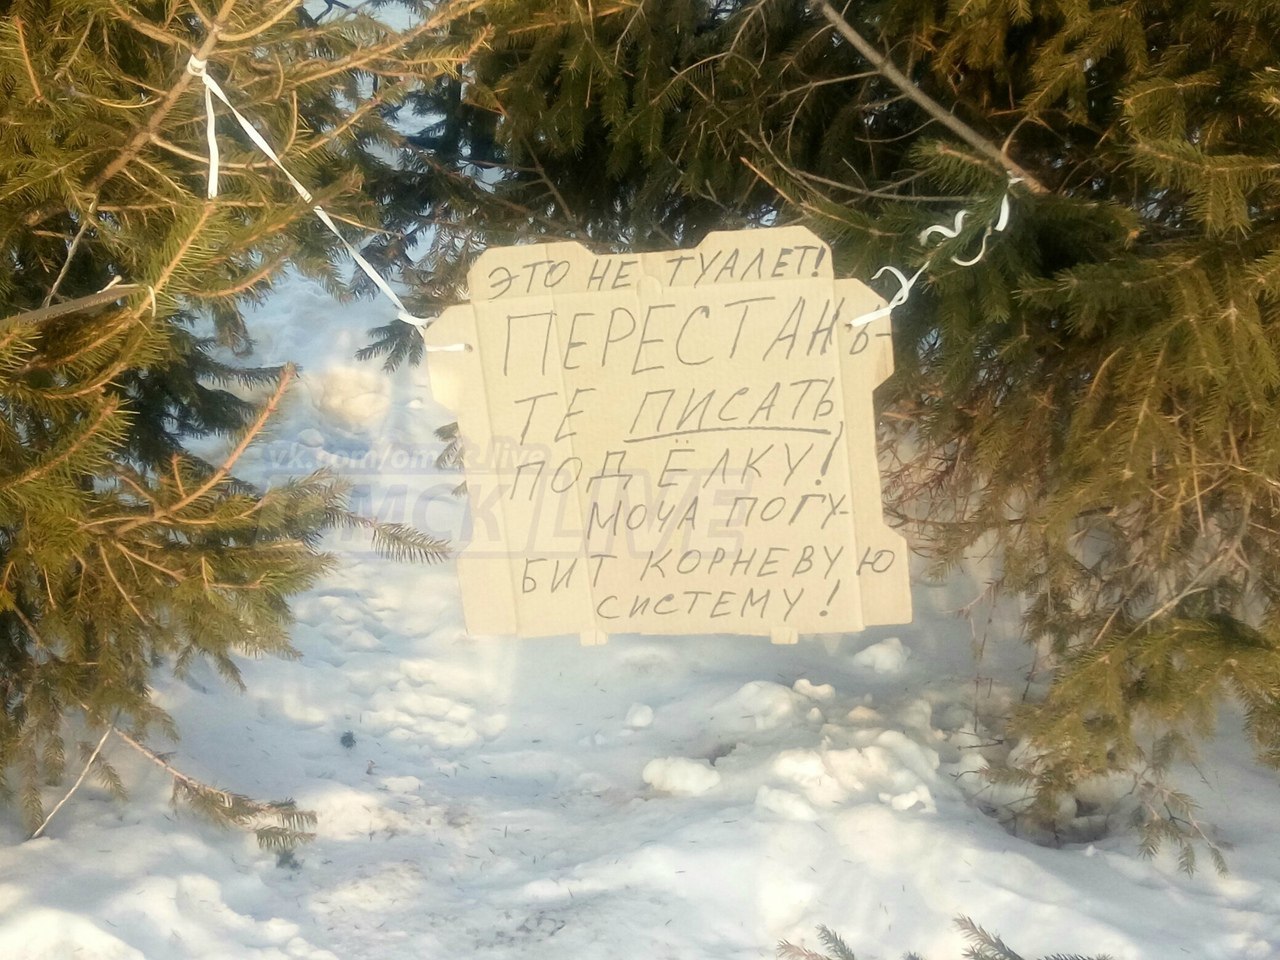 ЭТО НЕ ТУАЛЕТ!
ПЕРЕСТАНЬ-
ТЕ ПИСАТЬ
ПОД ЁЛКУ!
МОЧА ПОГУ-
БИТ КОРНЕВУЮ
СИСТЕМУ!
vk.com/omsk_live
ОМСК LIVE